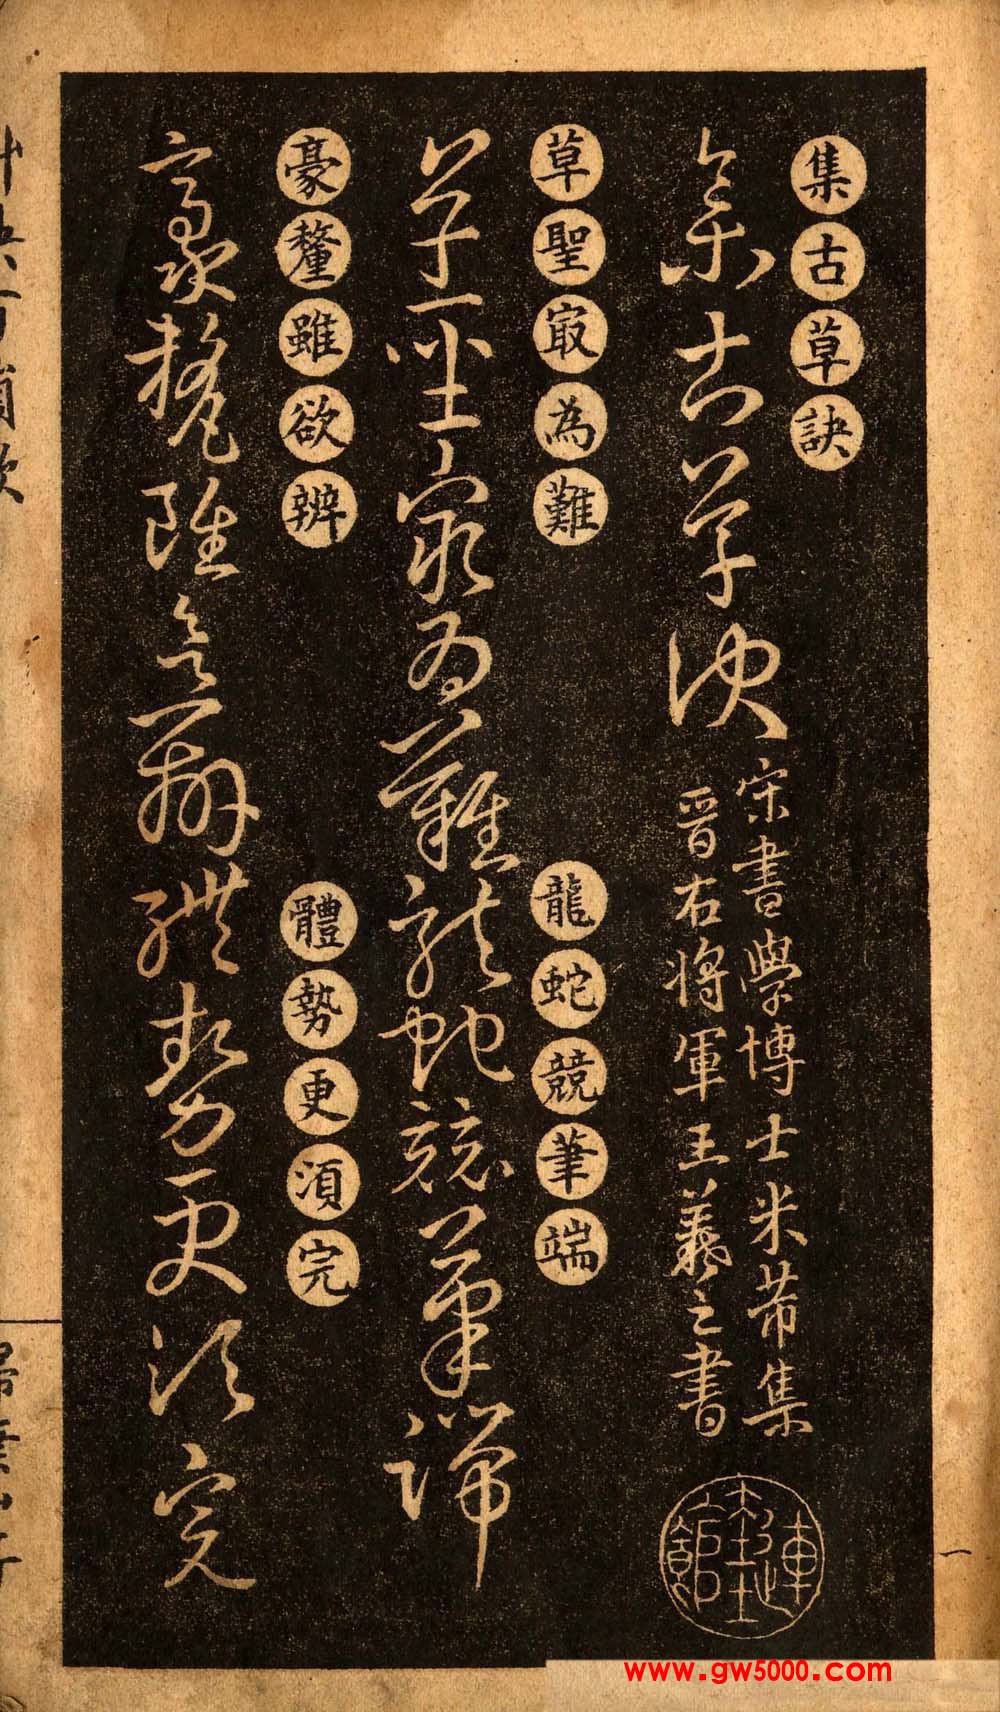 集古草訣
集古草訣
宋書學博士米芾集
晋右将軍王羲之書
草聖㝡為難
龍蛇競筆端
草聖㝡為難龍蛇競筆端
豪釐雖欲辨
體勢更湏完
豪釐雖欲辨體勢更湏完
一
www.gw5000.com